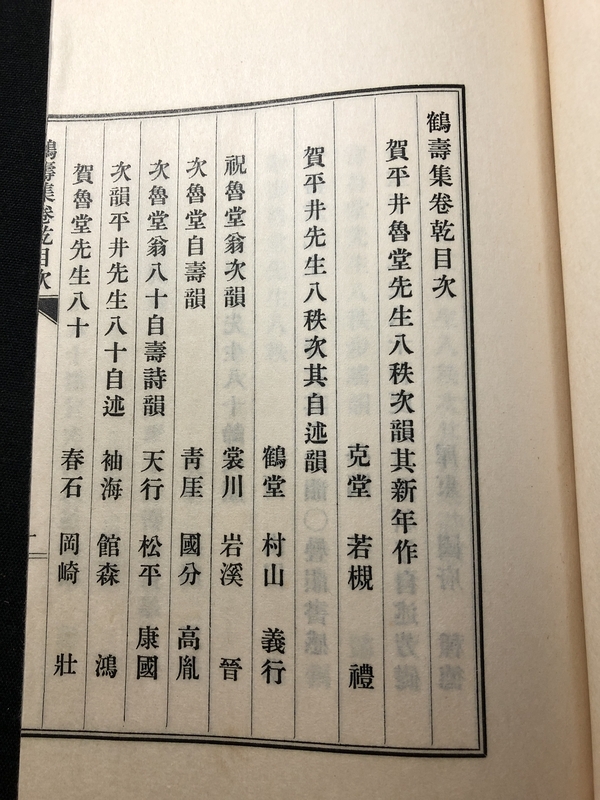 鶴壽集卷乾目次
賀平井魯堂先生八秩次韻其新年作
克堂 若槻 禮
賀平井先生八秩次其自述韻
鶴堂 村山 義行
祝魯堂翁次韻 裳川 岩溪 晉
次魯堂自壽韻 靑厓 國分 高胤
次魯堂翁八十自壽詩韻 天行 松平 康國
次韻平井先生八十自述 袖海 館森 鴻
賀魯堂先生八十 春石 岡崎 壯
鶴壽集卷乾目次